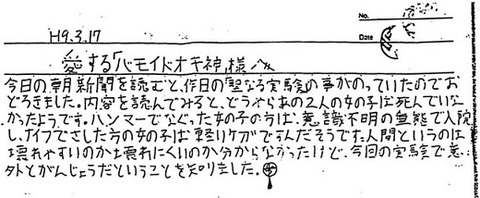 No.
Date
H9.3.17
愛する「バモイドオキ神」様へ
今日の朝新聞を読むと、作日の聖なる実験の事がのっていたのでお
どろきました。内容を読んでみると、どうやらあの2人の女の子は死んでいな
かったようです。ハンマーでなぐった女の子の方は、意識不明の重態で入院
し、ナイフでさした方の女の子は軽いケガですんだそうです。人間というのは
壊れやすいのか壊れにくいのか分からなかったけど、今回の実験で意
外とがんじょうだということを知りました。